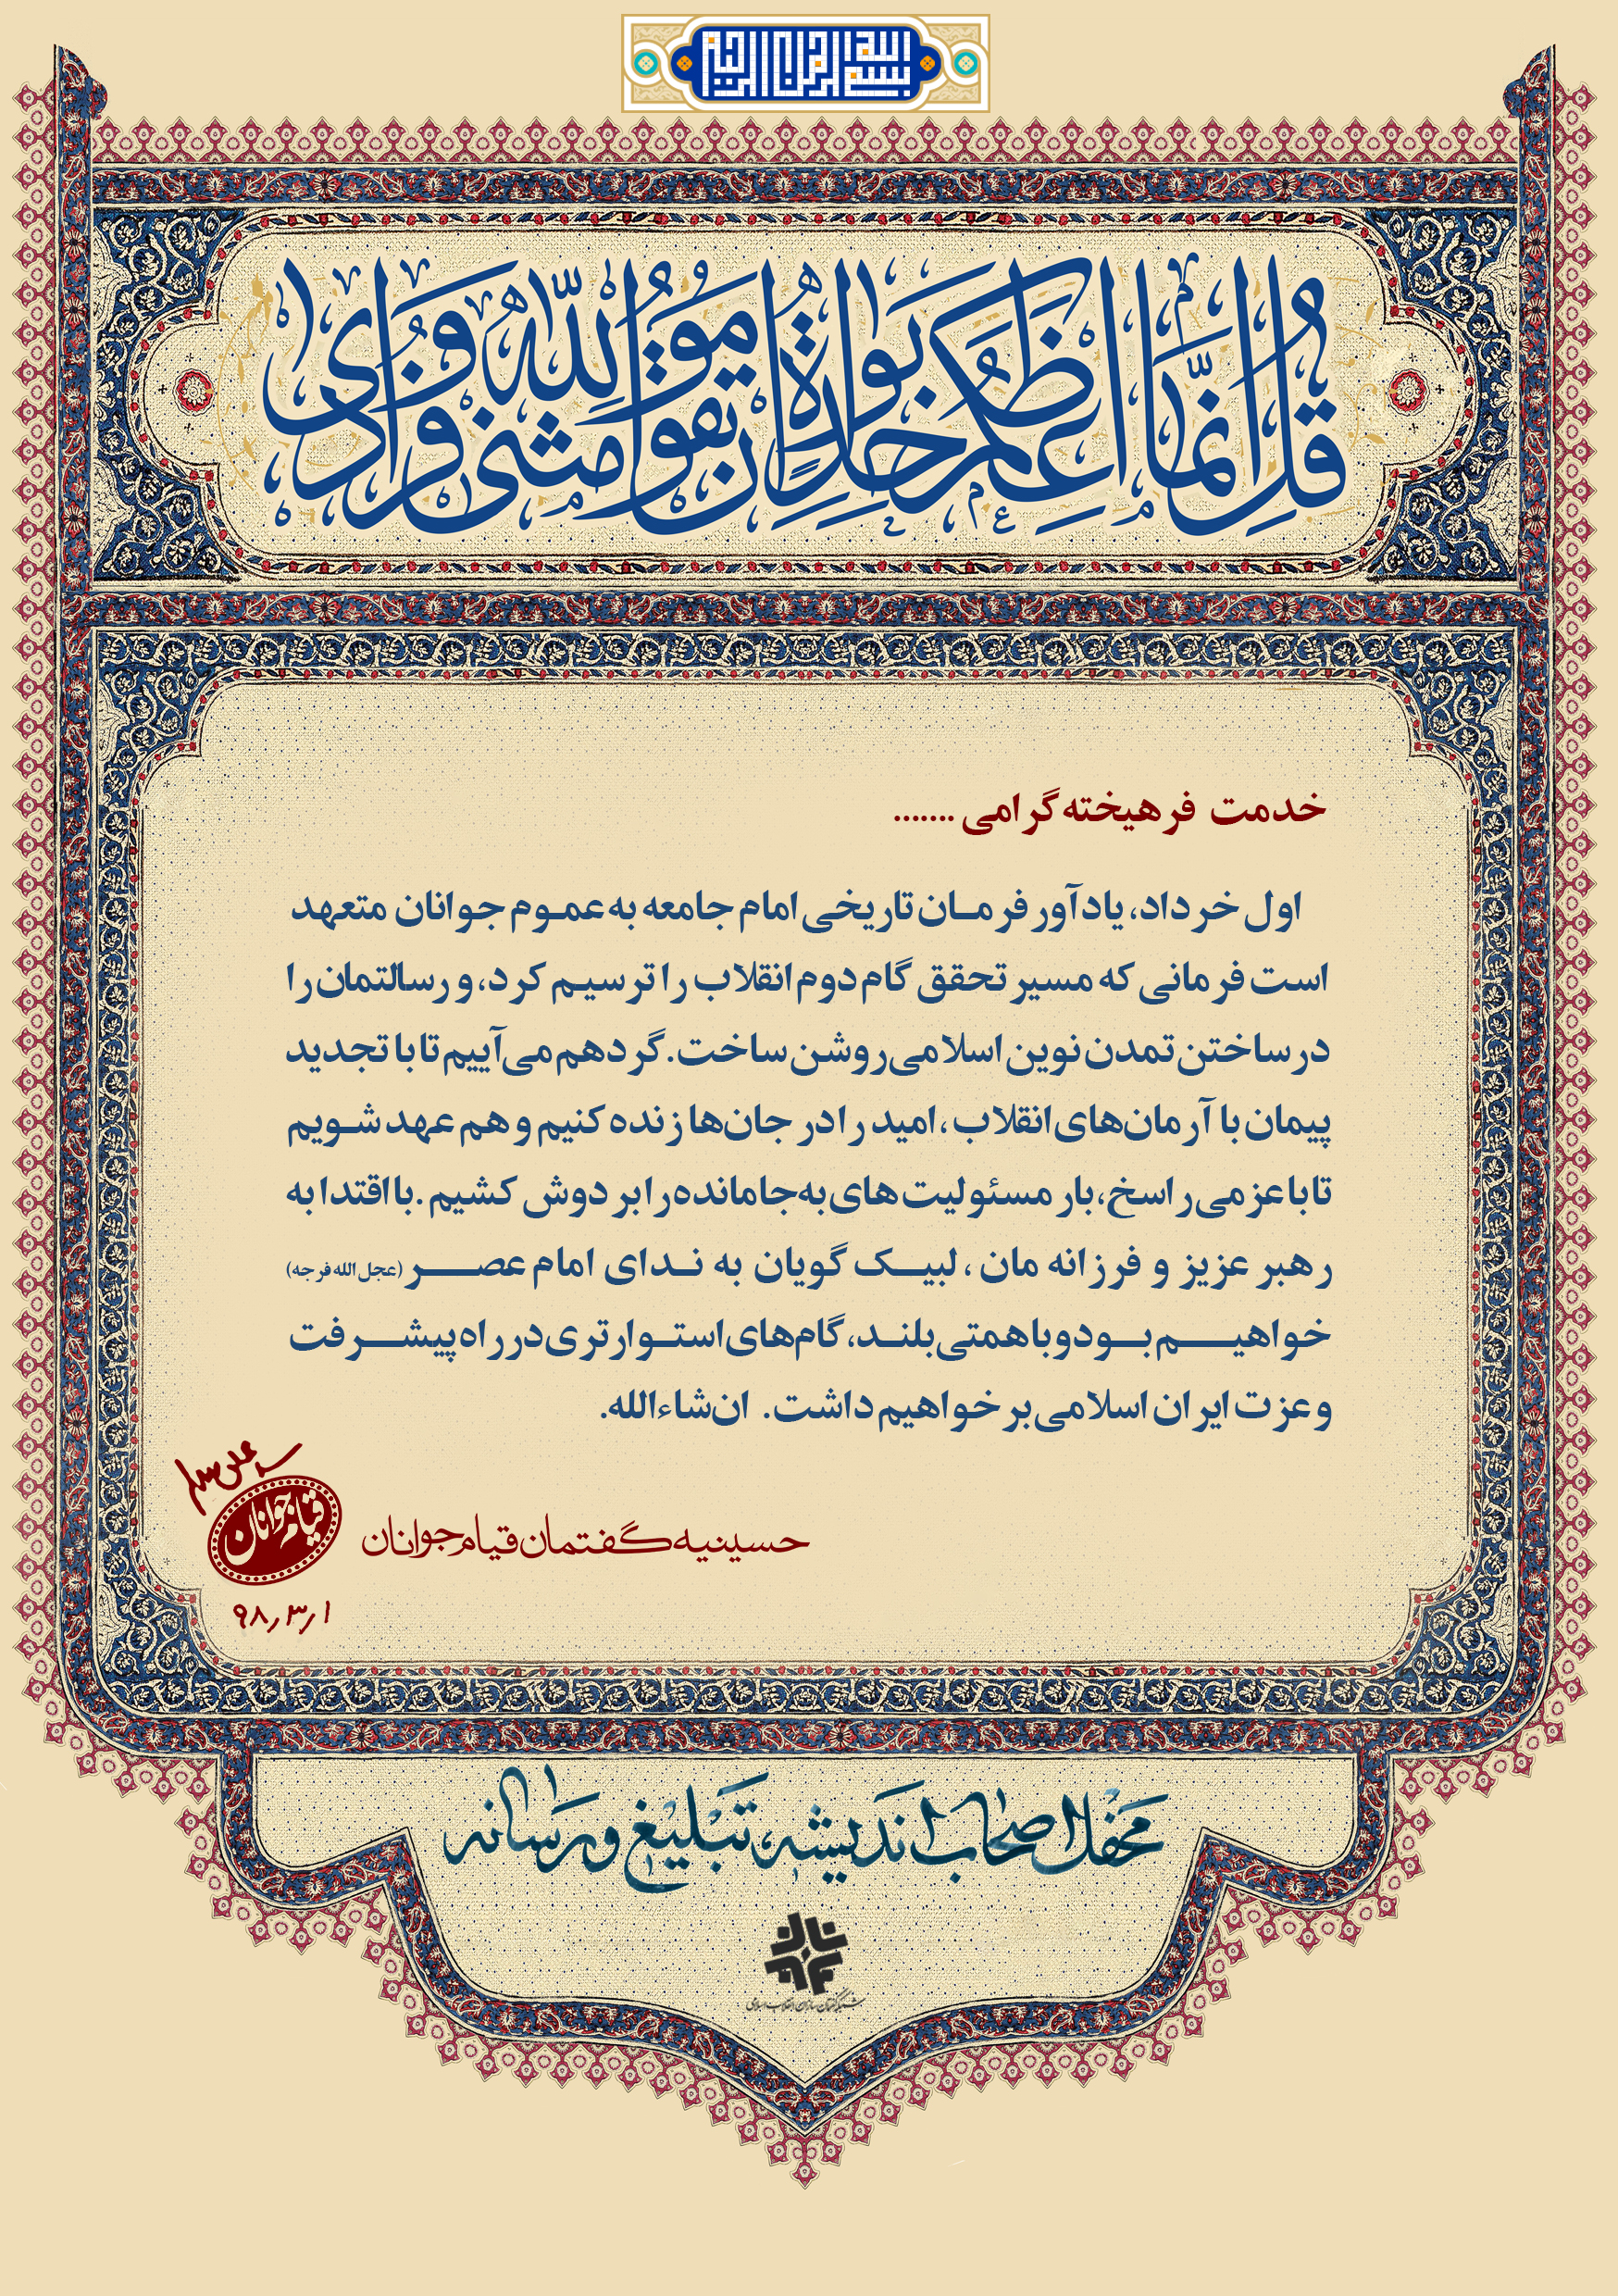 بسم الله الرحمن الرحیم
قُل اِنَّمَا اَعِظُکُم بِوَاحِدَةٍ اَن تَقُومُوا لِلّٰهِ مَثنی وَ فُرَادی
خدمت فرهیخته گرامی .......
اول خرداد، یادآور فرمـان تاریخی امام جامعه به عمـوم جوانان متعهد
است فرمانی که مسیر تحقق گام دوم انقلاب را ترسیـم کرد، و رسالتمان را
در ساختن تمدن نوین اسلامی روشن ساخت. گرد هم می‌آییم تا با تجدید
پیمان با آرمان‌های انقلاب، امید را در جان‌ها زنده کنیم و هم عهد شـویم
تا با عزمی راسخ، بار مسئولیت های به‌جامانده را بر دوش کشیم . با اقتدا به
رهبر عزیز و فرزانه مان ، لبیـک گویان به نـدای امام عصـر (عجل الله فرجه)
خواهیـم بـود و با همتی بلنـد، گام‌های استـوارتری در راه پیشـرفت
و عزت ایران اسلامی بر خواهیم داشت. ان‌شاءالله.
حسینیه گفتمان قیام جوانان
قیام جوانان
۹۸٫۳٫۱
محفل اصحاب اندیشه، تبلیغ و رسانه